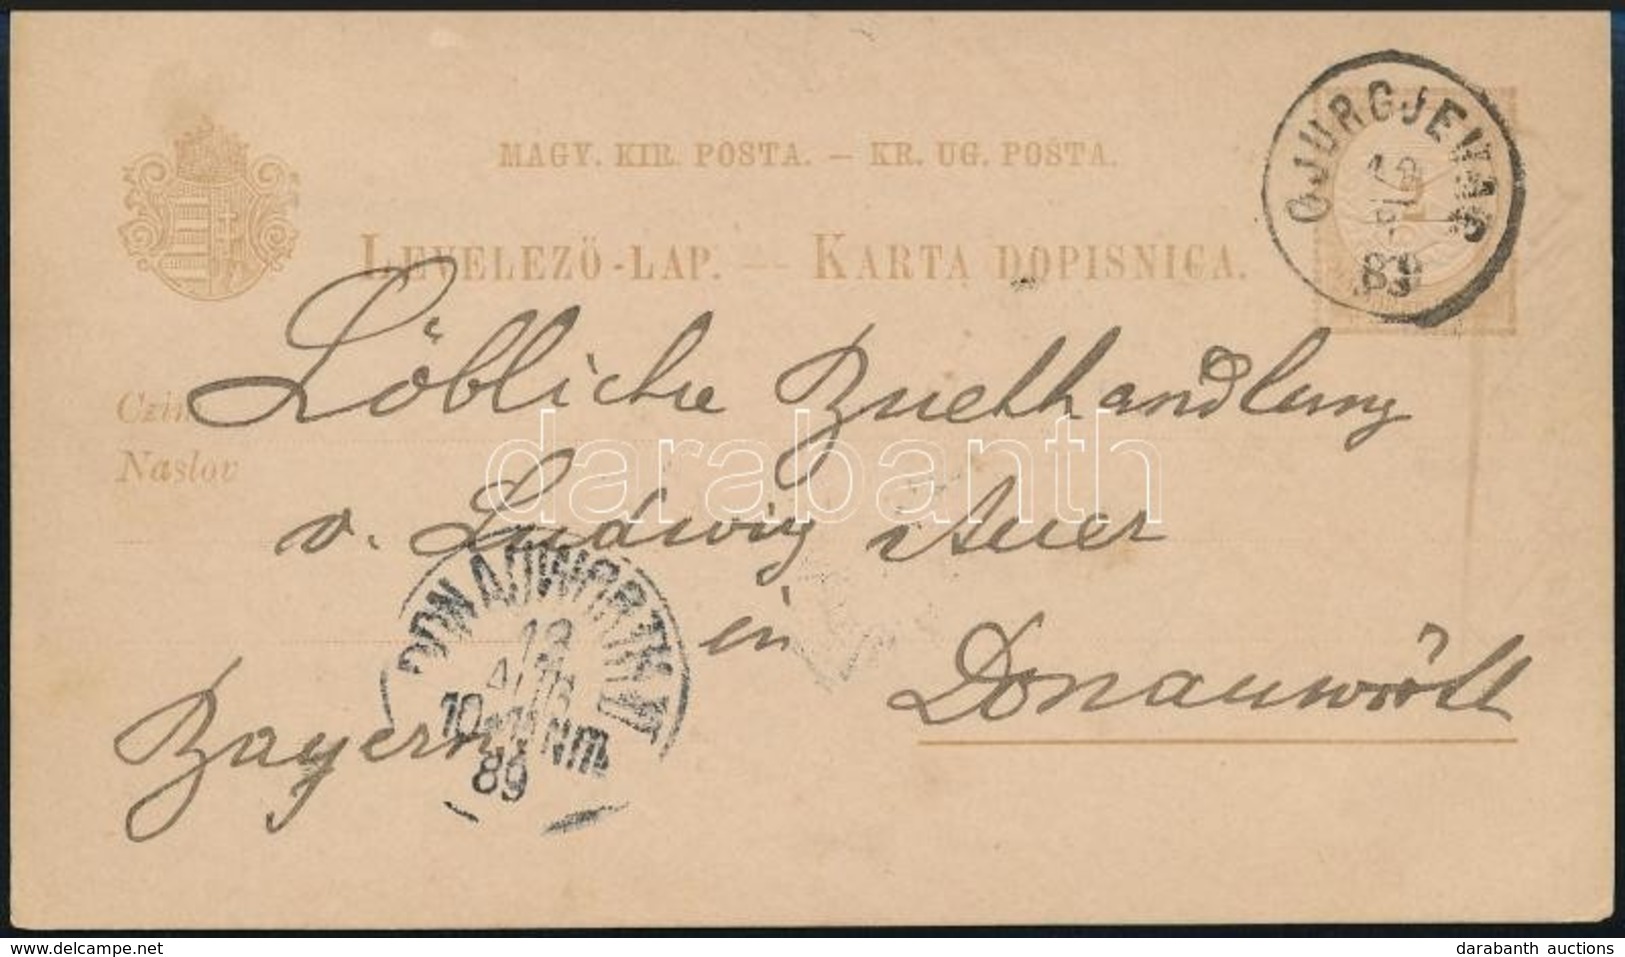 MAGY. KIR. POSTA. — KR. UG. POŠTA.
LEVELEZŐ-LAP. — KARTA DOPISNICA.
GJURGJEWAC
89
Löbliche Buchhandlung
Naslov
v. Ludwig Auer
in
Donauwörth
Bayern
DONAUWÖRTH
10
NM
89
darabanth
www.delcampe.net
darabanth auctions